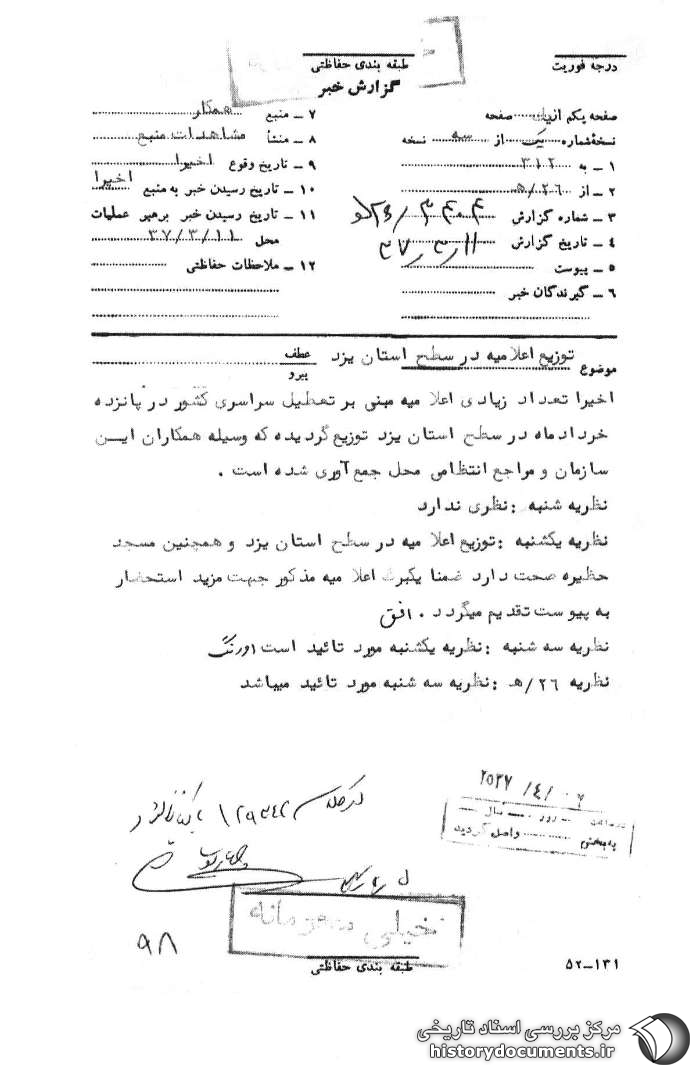 درجه فوریت
طبقه بندی حفاظتی
گزارش خبر
صفحه یکم از یک صفحه
نسخه‌شماره یک از سه نسخه
۱ ـ به ۳۱۲
۲ ـ از ۲۶/ه‍
۳ ـ شماره گزارش
۴ ـ تاریخ گزارش ۳۷/۳/۱۱
۵ ـ پیوست
۶ ـ گیرندگان خبر
۷ ـ منبع همکار
۸ ـ منشأ مشاهدات منبع
۹ ـ تاریخ وقوع اخیرا
۱۰ ـ تاریخ رسیدن خبر به منبع اخیرا
۱۱ ـ تاریخ رسیدن خبر برهبر عملیات
محل ۳۷/۳/۱۱
۱۲ ـ ملاحظات حفاظتی
موضوع توزیع اعلامیه در سطح استان یزد
عطف
پیرو
اخیرا تعداد زیادی اعلامیه مبنی بر تعطیل سراسری کشور در پانزده
خردادماه در سطح استان یزد توزیع گردیده که وسیله همکاران ایـن
سازمان و مراجع انتظامی محل جمع آوری شده است .
نظریه شنبه : نظری ندارد
نظریه یکشنبه : توزیع اعلامیه در سطح استان یزد و همچنین مسجد
حظیره صحت دارد ضمنا یکبرگ اعلامیه مذکور جهت مزید استحضار
به پیوست تقدیم میگردد . افق
نظریه سه شنبه : نظریه یکشنبه مورد تائید است اورنگ
نظریه ۲۶/ه‍ : نظریه سه شنبه مورد تائید میباشد
۲۵۳۷/۴/۰۶
روز سال
به‌بخش واصل گردید
خیلی محرمانه
طبقه بندی حفاظتی
۹۸
۵۲ـ۱۳۱
مرکز بررسی اسناد تاریخی
historydocuments.ir